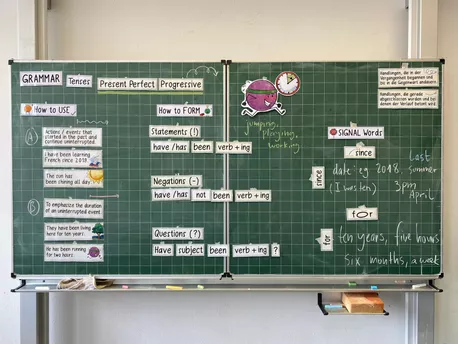 GRAMMAR Tenses
Present Perfect Progressive
How to USE
A
Actions / events that
started in the past and
continue uninterrupted.
I have been learning
French since 2018.
The sun has been
shining all day.
B
To emphasize the duration
of an uninterrupted event.
They have been living
here for ten years.
He has been running
for two hours.
How to FORM
Statements (!)
have / has been verb + ing
Negations (-)
have / has not been verb + ing
Questions (?)
Have subject been verb + ing ?
jumping,
playing,
working
Handlungen, die in der
Vergangenheit begannen und
bis in die Gegenwart andauern.
Handlungen, die gerade
abgeschlossen wurden und bei
denen der Verlauf betont wird.
SIGNAL Words
since
since
date eg 2018.
(I was ten)
Last
summer
3pm
April
for
for
ten years, five hours
six months, a week